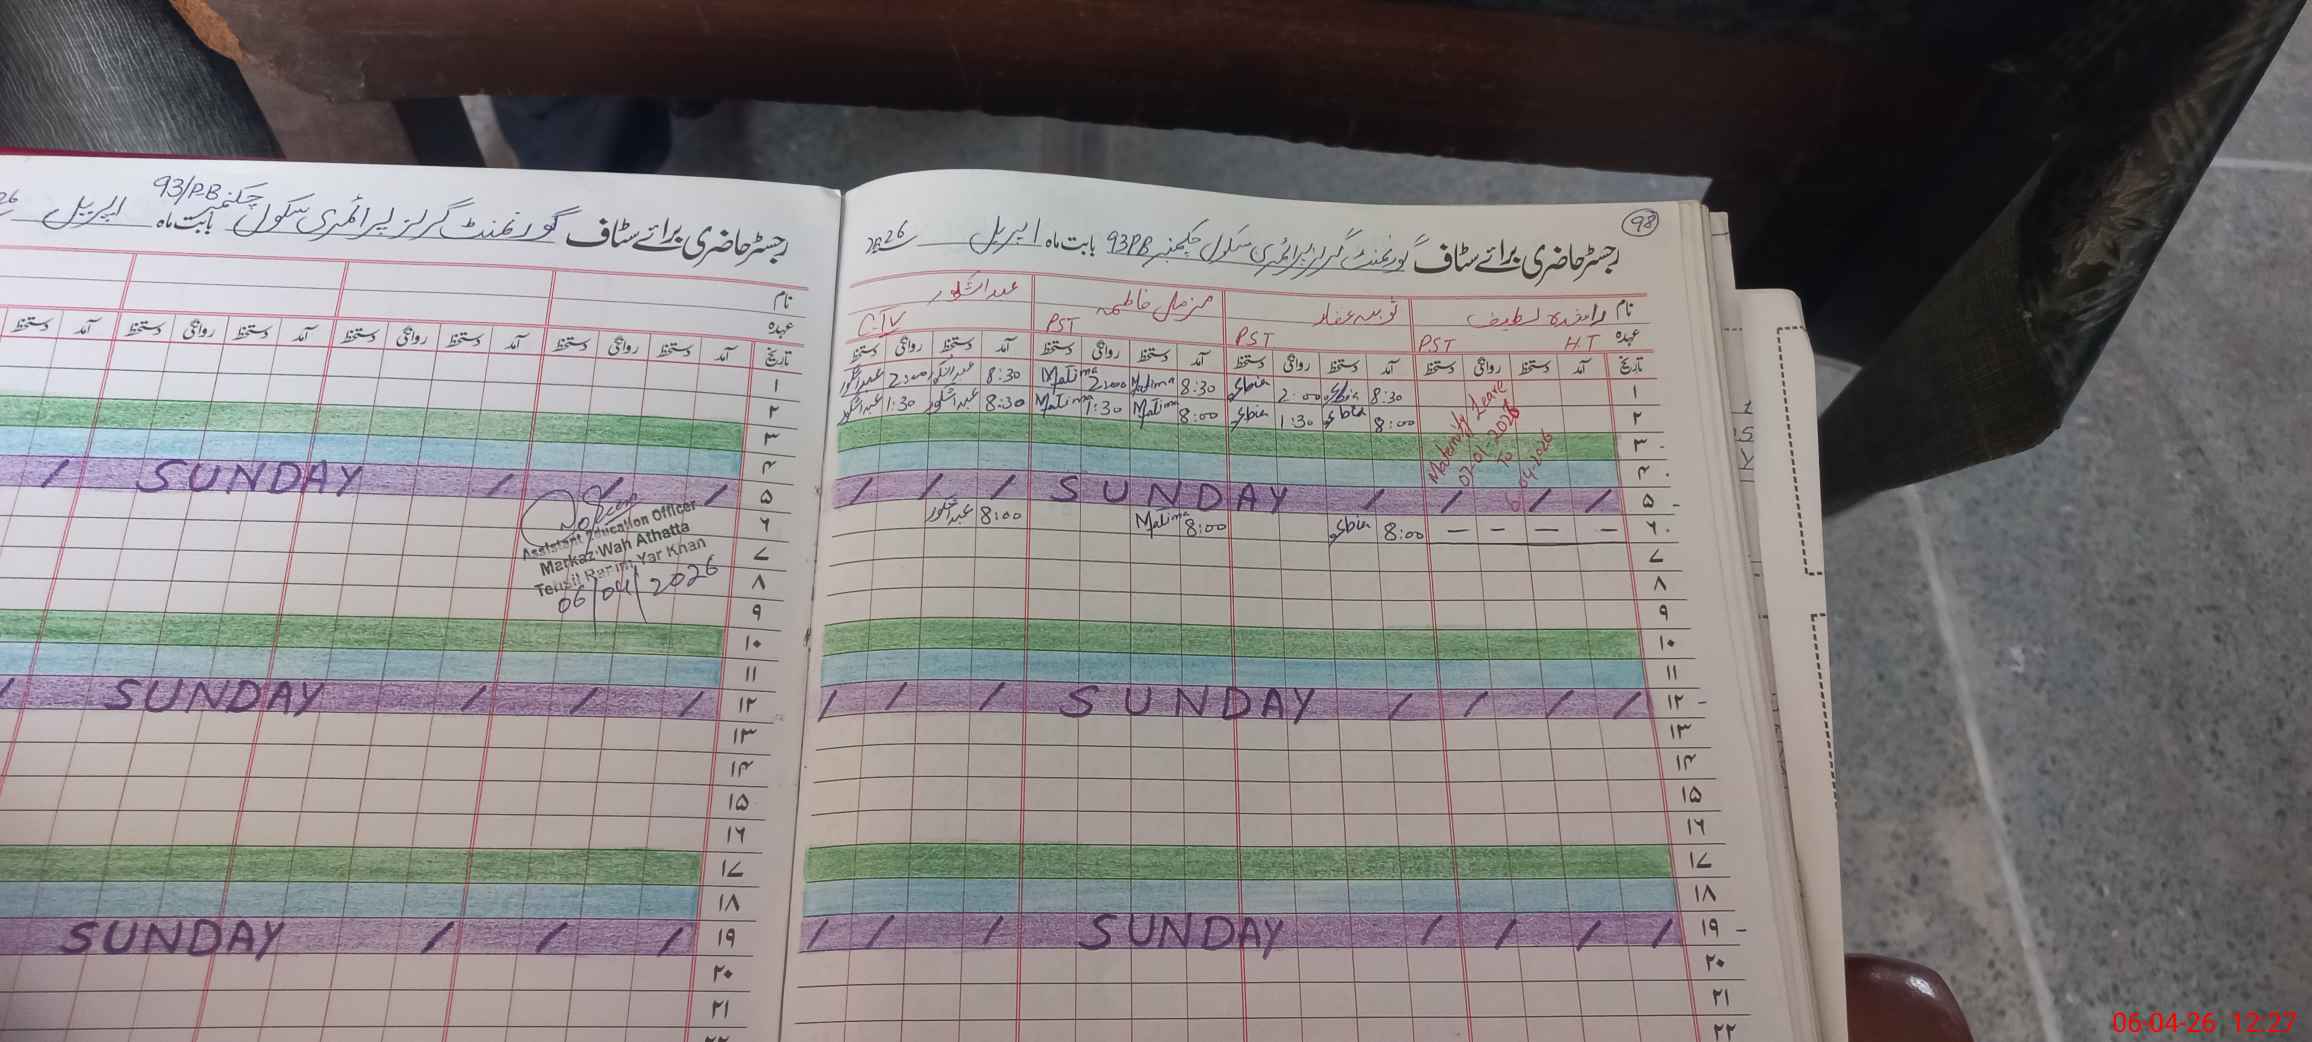 رجسٹر حاضری برائے سٹاف گورنمنٹ گرلز پرائمری سکول چکنمبر 93/P.B بابت ماہ اپریل 26
نام
عہدہ
تاریخ آمد دستخط روانگی دستخط آمد دستخط روانگی دستخط آمد دستخط روانگی دستخط آمد دستخط
۱
۲
۳
۴
۵ SUNDAY
۶
۷
۸
۹
۱۰
۱۱
۱۲ SUNDAY
۱۳
۱۴
۱۵
۱۶
۱۷
۱۸
۱۹ SUNDAY
۲۰
۲۱
۲۲
Assistant Education Officer
Markaz Wah Athatta
Tehsil Rahim Yar Khan
06/04/2026
98
رجسٹر حاضری برائے سٹاف گورنمنٹ گرلز پرائمری سکول چکنمبر 93PB بابت ماہ اپریل 2026
نام مزمل فاطمہ عبدالشکور
عہدہ H.T PST PST PST C-IV
تاریخ آمد دستخط روانگی دستخط آمد دستخط روانگی دستخط آمد دستخط روانگی دستخط آمد دستخط روانگی دستخط
۱ 8:30 2:00 8:30 2:00 8:30 عبدالشکور 2:00 عبدالشکور
۲ 8:00 1:30 8:00 1:30 8:30 عبدالشکور 1:30 عبدالشکور
Maternity Leave
07-01-2026
To
6-04-2026
۳
۴
۵ SUNDAY
۶ 8:00 8:00 8:00 عبدالشکور
۷
۸
۹
۱۰
۱۱
۱۲ SUNDAY
۱۳
۱۴
۱۵
۱۶
۱۷
۱۸
۱۹ SUNDAY
۲۰
۲۱
۲۲
06-04-26 12:27